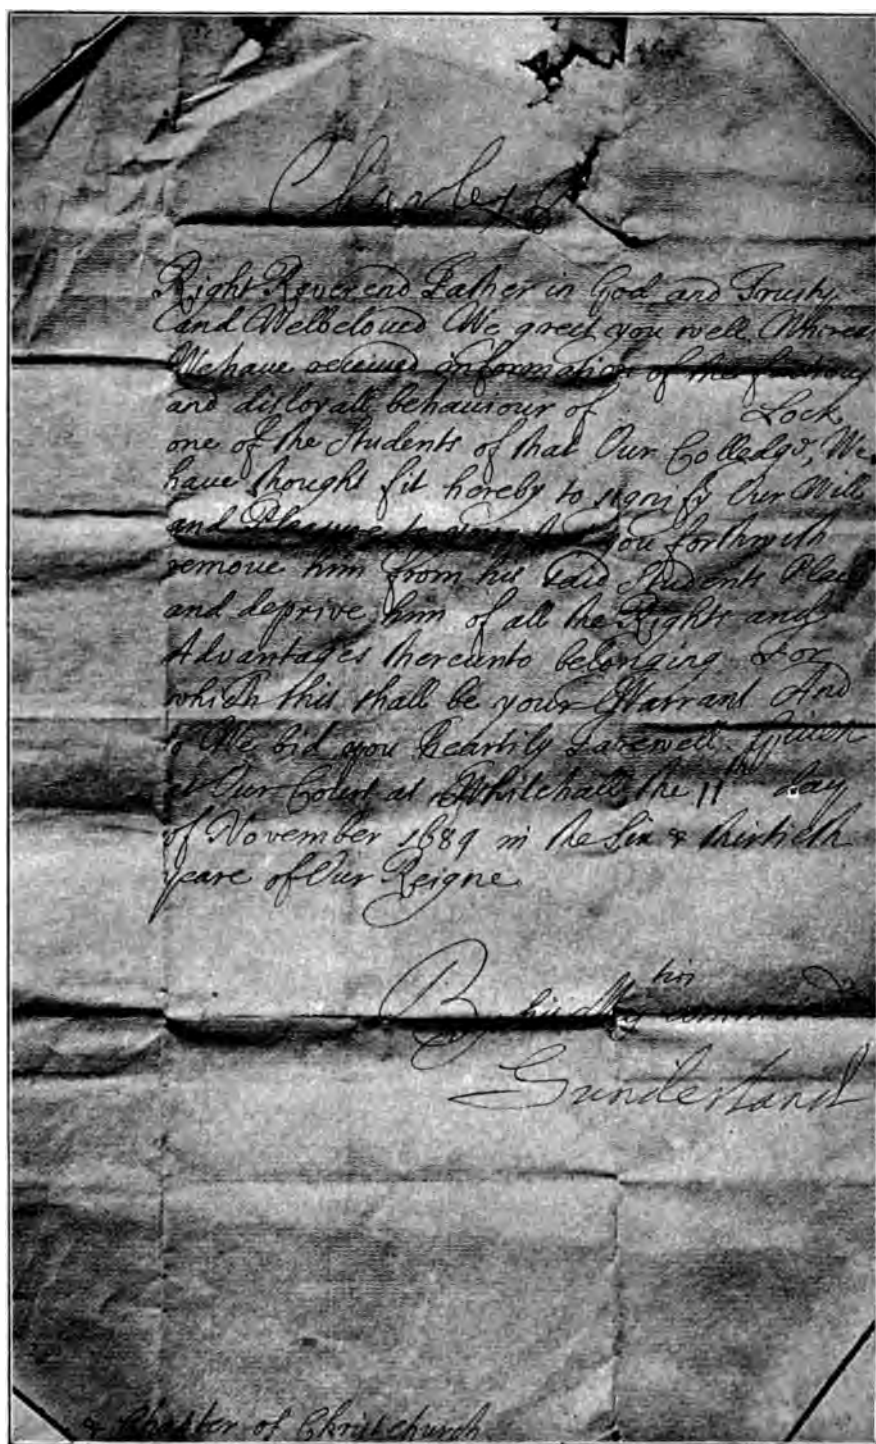 Charles R
Right Reverend Father in God and Trusty
and Welbeloved We greet you well. Whereas
We have received information of the factious
and disloyall behaviour of Lock
one of the Students of that Our Colledge, We
have thought fit hereby to signify Our Will
and Pleasure to you forthwith
remove him from his said Students Place
and deprive him of all the Rights and
Advantages thereunto belonging For
which this shall be your Warrant And
so We bid you heartily farewell. Given
at Our Court at Whitehall the 11th day
of November 1684 in the Six & thirtieth
yeare of Our Reigne.
By his Maties command
Sunderland
& Chapter of Christchurch